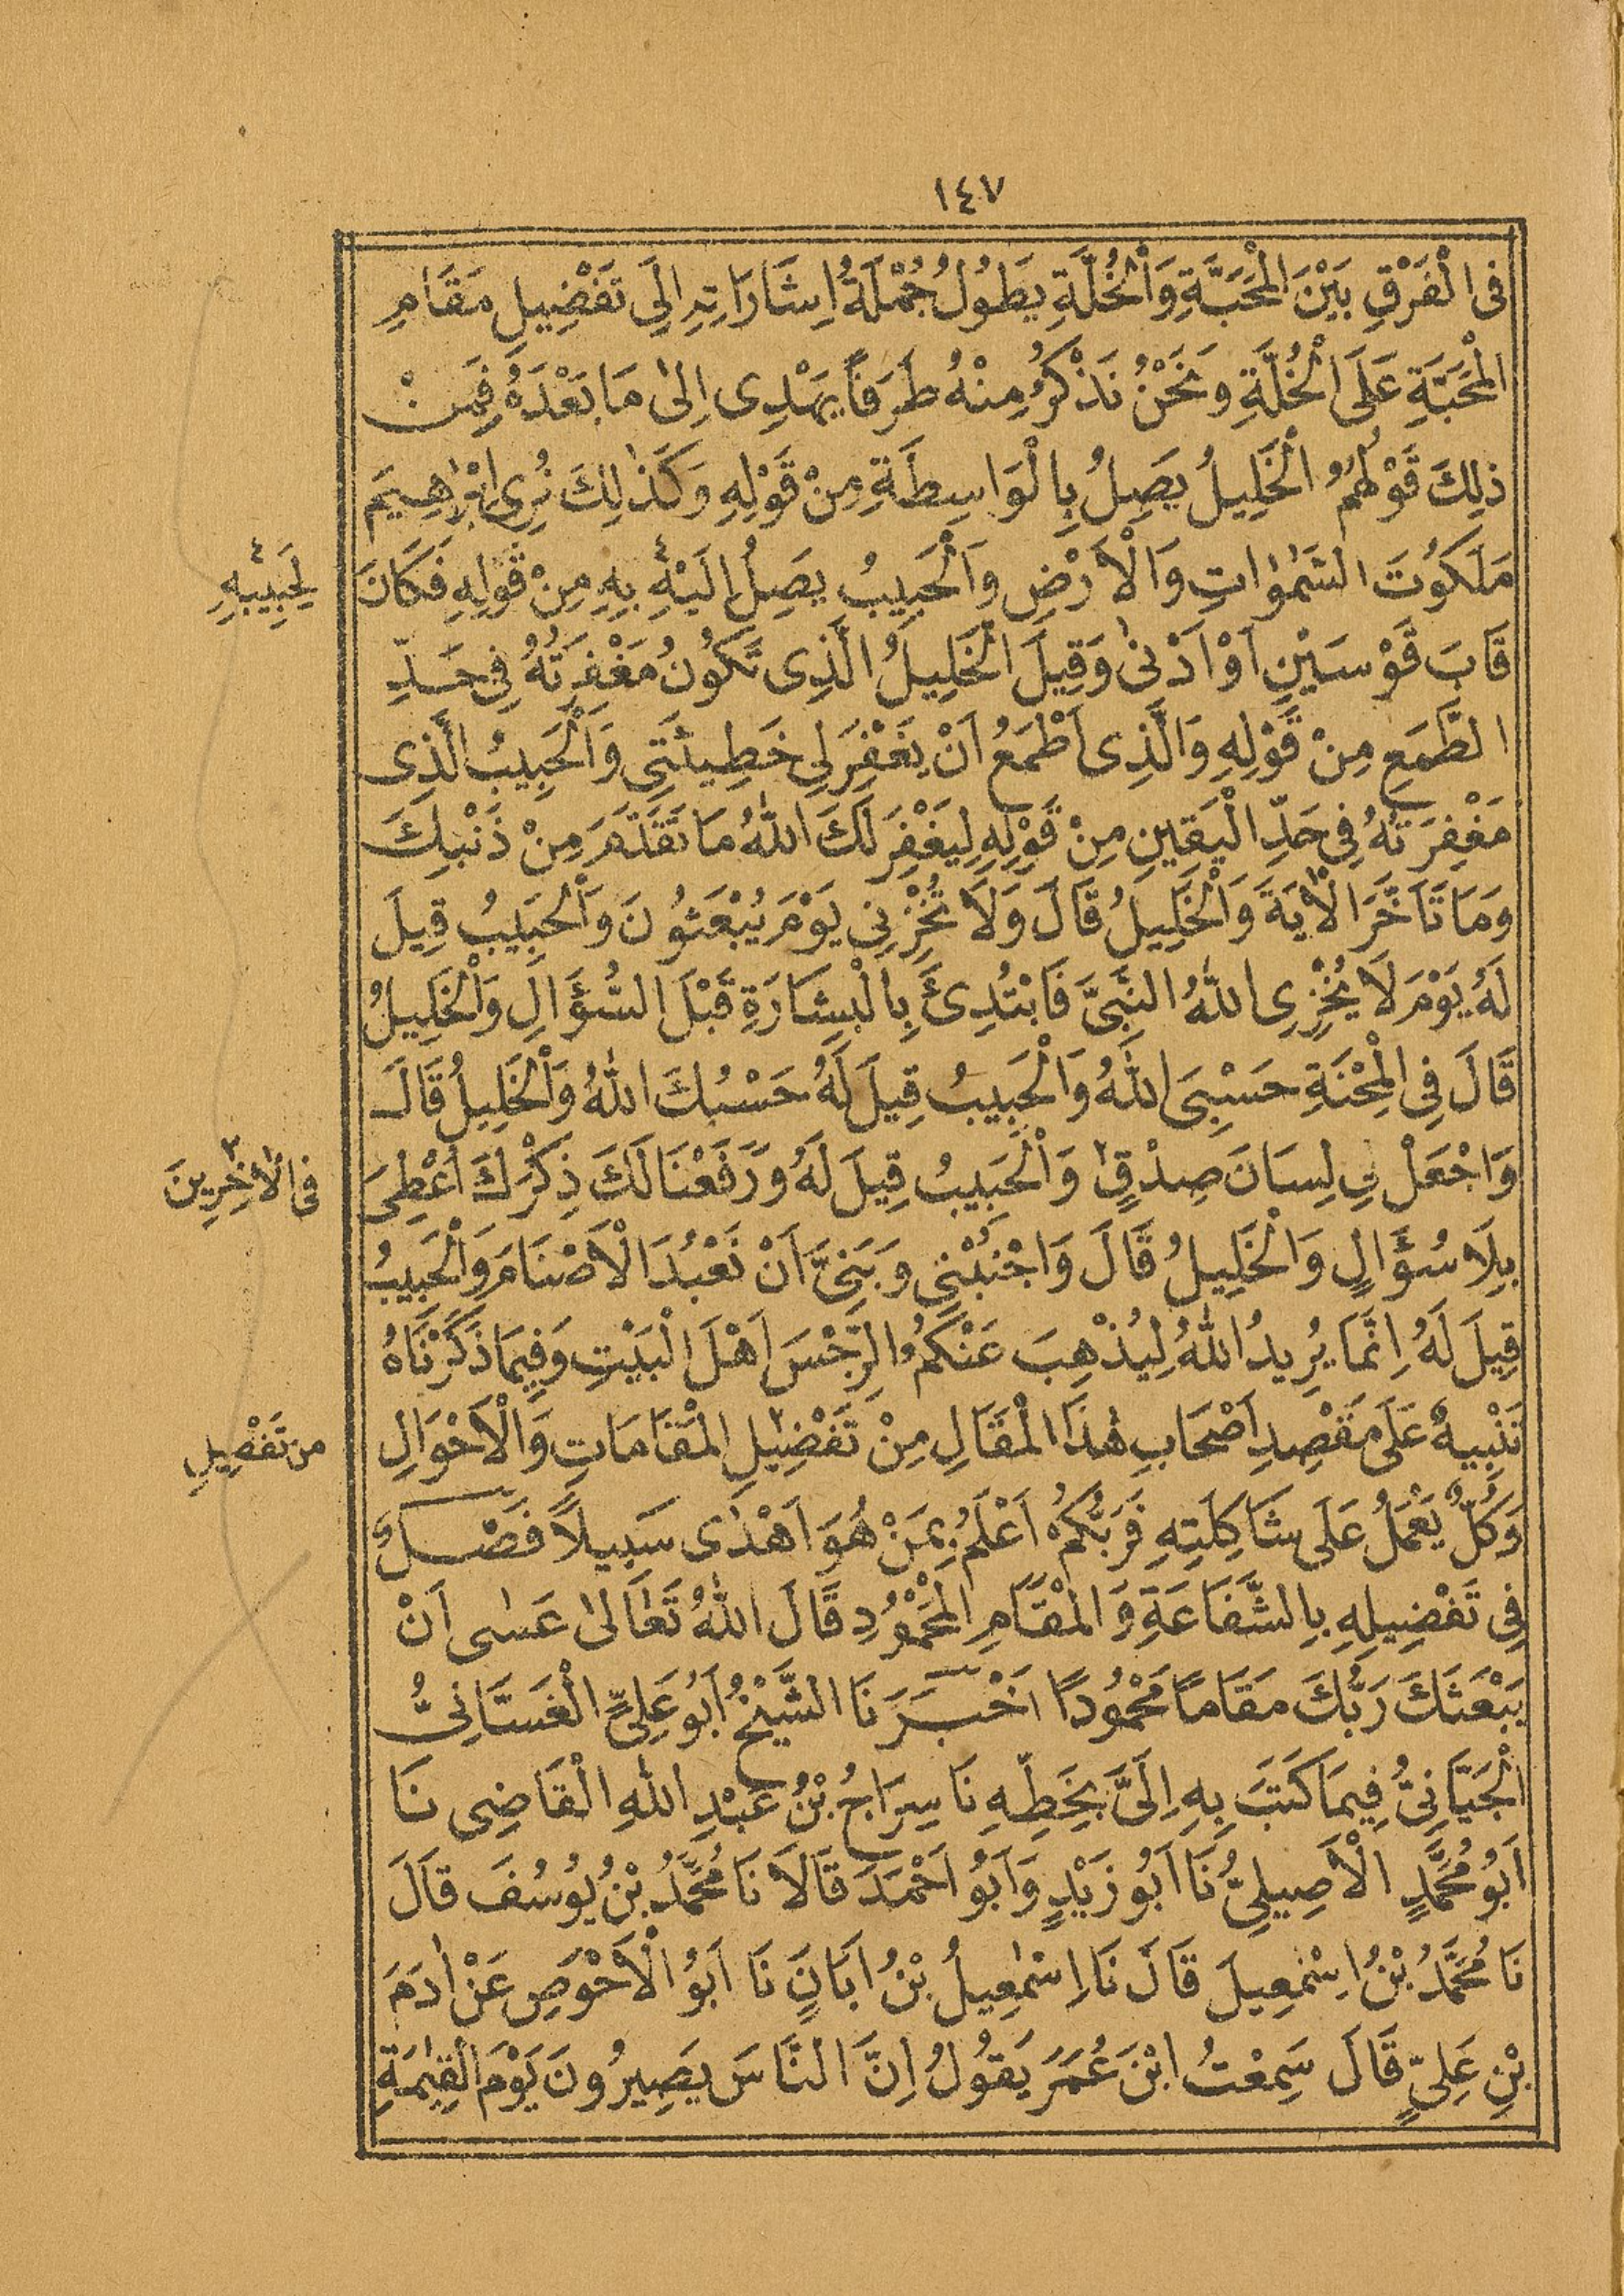 ١٤٧
فِى الْفَرْقِ بَيْنَ الْمَحَبَّةِ وَالْخُلَّةِ يَطُولُ جُمْلَةُ اِشَارَاتِهِ اِلَى تَفْضِيلِ مَقَامِ
الْمَحَبَّةِ عَلَى الْخُلَّةِ وَنَحْنُ نَذْكُرُ مِنْهُ طَرَفًا يَهْدِى اِلىٰ مَا بَعْدَهُ فَمِنْ
ذٰلِكَ قَوْلُهُمُ الْخَلِيلُ يَصِلُ بِالْوَاسِطَةِ مِنْ قَوْلِهِ وَكَذٰلِكَ نُرِى اِبْرٰهِيمَ
مَلَكُوتَ السَّمٰوَاتِ وَالْاَرْضِ وَالْحَبِيبُ يَصِلُ اِلَيْهِ ٤ بِهِ مِنْ قَوْلِهِ فَكَانَ
٤ لِحَبِيبِهِ
قَابَ قَوْسَيْنِ اَوْ اَدْنىٰ وَقِيلَ الْخَلِيلُ الَّذِى تَكُونُ مَغْفِرَتُهُ فِى حَدِّ
الطَّمَعِ مِنْ قَوْلِهِ وَالَّذِى اَطْمَعُ اَنْ يَغْفِرَ لِى خَطِيئَتِى وَالْحَبِيبُ الَّذِى
مَغْفِرَتُهُ فِى حَدِّ الْيَقِينِ مِنْ قَوْلِهِ لِيَغْفِرَ لَكَ اللّٰهُ مَا تَقَدَّمَ مِنْ ذَنْبِكَ
وَمَا تَاَخَّرَ الْاٰيَةَ وَالْخَلِيلُ قَالَ وَلَا تُخْزِنِى يَوْمَ يُبْعَثُونَ وَالْحَبِيبُ قِيلَ
لَهُ يَوْمَ لَا يُخْزِى اللّٰهُ النَّبِىَّ فَابْتُدِئَ بِالْبِشَارَةِ قَبْلَ السُّؤَالِ وَالْخَلِيلُ
قَالَ فِى الْمِحْنَةِ حَسْبِىَ اللّٰهُ وَالْحَبِيبُ قِيلَ لَهُ حَسْبُكَ اللّٰهُ وَالْخَلِيلُ قَالَ
وَاجْعَلْ لِى لِسَانَ صِدْقٍ ٢ وَالْحَبِيبُ قِيلَ لَهُ وَرَفَعْنَا لَكَ ذِكْرَكَ اُعْطِىَ
٢ فِى الْاٰخِرِينَ
بِلَا سُؤَالٍ وَالْخَلِيلُ قَالَ وَاجْنُبْنِى وَبَنِىَّ اَنْ نَعْبُدَ الْاَصْنَامَ وَالْحَبِيبُ
قِيلَ لَهُ اِنَّمَا يُرِيدُ اللّٰهُ لِيُذْهِبَ عَنْكُمُ الرِّجْسَ اَهْلَ الْبَيْتِ وَفِيمَا ذَكَرْنَاهُ
تَنْبِيهٌ عَلَى مَقْصِدِ اَصْحَابِ هٰذَا الْمَقَالِ مِنْ تَفْضِيلِ الْمَقَامَاتِ وَالْاَحْوَالِ
من تَفْصِيلِ
وَكُلٌّ يَعْمَلُ عَلَى شَاكِلَتِهِ فَرَبُّكُمْ اَعْلَمُ بِمَنْ هُوَ اَهْدٰى سَبِيلًا فَصْلٌ
فِى تَفْضِيلِهِ بِالشَّفَاعَةِ وَالْمَقَامِ الْمَحْمُودِ قَالَ اللّٰهُ تَعَالىٰ عَسٰى اَنْ
يَبْعَثَكَ رَبُّكَ مَقَامًا مَحْمُودًا اَخْبَرَنَا الشَّيْخُ اَبُو عَلِىٍّ الْغَسَّانِىُّ
الْجَيَّانِىُّ فِيمَا كَتَبَ بِهِ اِلَىَّ بِخَطِّهِ نَا سِرَاجُ بْنُ عَبْدِ اللّٰهِ الْقَاضِى نَا
اَبُو مُحَمَّدٍ الْاَصِيلِىُّ نَا اَبُو زَيْدٍ وَاَبُو اَحْمَدَ قَالَا نَا مُحَمَّدُ بْنُ يُوسُفَ قَالَ
نَا مُحَمَّدُ بْنُ اِسْمٰعِيلَ قَالَ نَا اِسْمٰعِيلُ بْنُ اَبَانٍ نَا اَبُو الْاَحْوَصِ عَنْ اٰدَمَ
بْنِ عَلِىٍّ قَالَ سَمِعْتُ ابْنَ عُمَرَ يَقُولُ اِنَّ النَّاسَ يَصِيرُونَ يَوْمَ الْقِيٰمَةِ